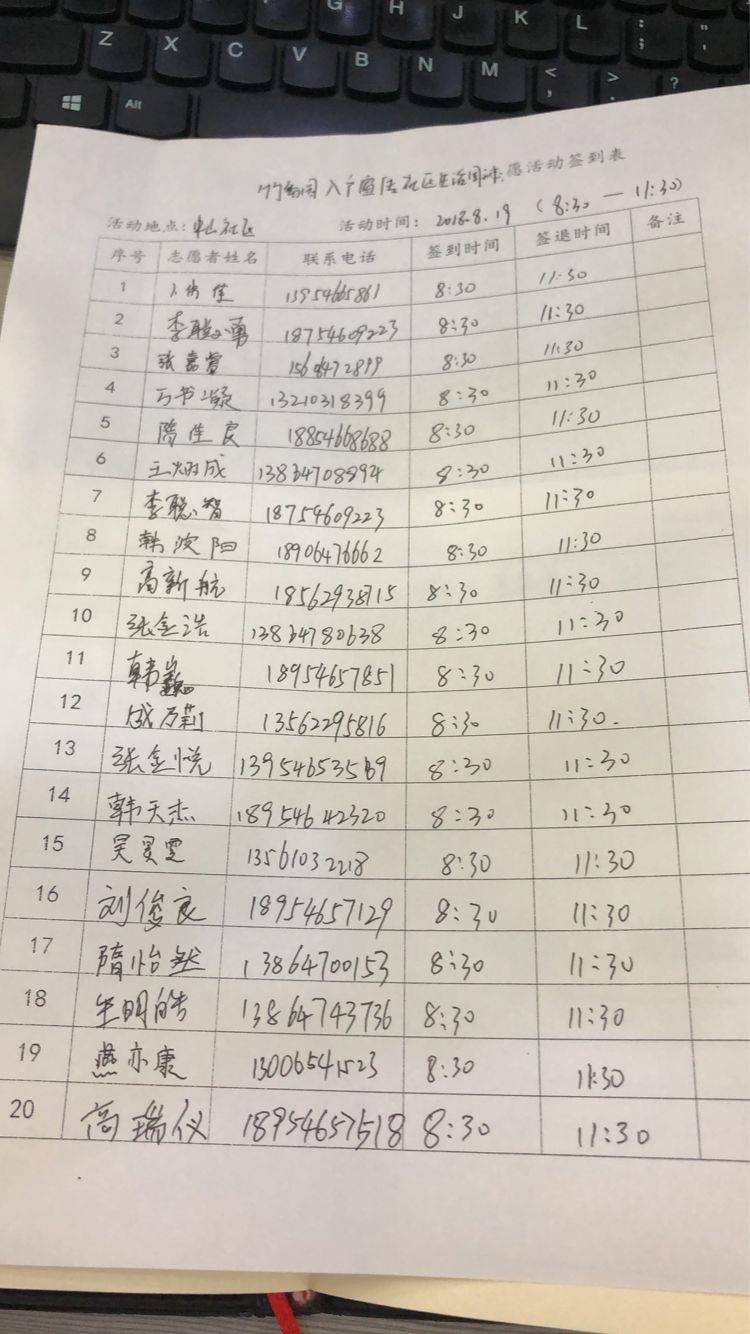 G H J K L
Z X C V B N M < , > . ? ; : " '
Alt
入户宣传社区生活 愿活动签到表
活动地点: 社区 活动时间: 2018.8.19 (8:30 — 11:30)
序号 志愿者姓名 联系电话 签到时间 签退时间 备注
1 佳 13954665861 8:30 11:30
2 李聪勇 18754609223 8:30 11:30
3 张嘉睿 8:30 11:30
4 万书凝 13210318399 8:30 11:30
5 隋佳良 18854668688 8:30 11:30
6 王炳成 8:30 11:30
7 李聪智 18754609223 8:30 11:30
8 韩浚阳 18906476662 8:30 11:30
9 高新航 18562938715 8:30 11:30
10 张金浩 13864780638 8:30 11:30
11 韩巍 18954657851 8:30 11:30
12 成万莉 13562295816 8:30 11:30.
13 张金悦 13954653569 8:30 11:30
14 韩天杰 18954642320 8:30 11:30
15 吴昊雯 13561032218 8:30 11:30
16 刘俊良 18954657129 8:30 11:30
17 隋怡然 13864700153 8:30 11:30
18 明皓 13864743736 8:30 11:30
19 燕亦康 13006541523 8:30 11:30
20 高瑞仪 18954657518 8:30 11:30